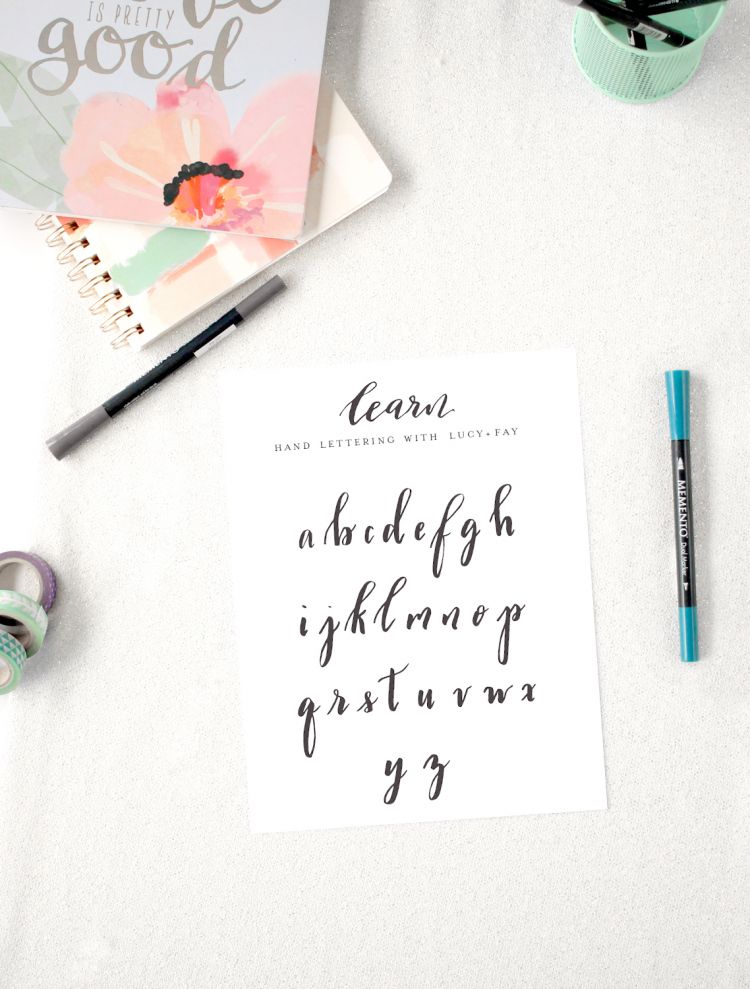 be
IS PRETTY
good
learn
HAND LETTERING WITH LUCY+FAY
a b c d e f g h
i j k l m n o p
q r s t u v w x
y z
MEMENTO
Dual Marker